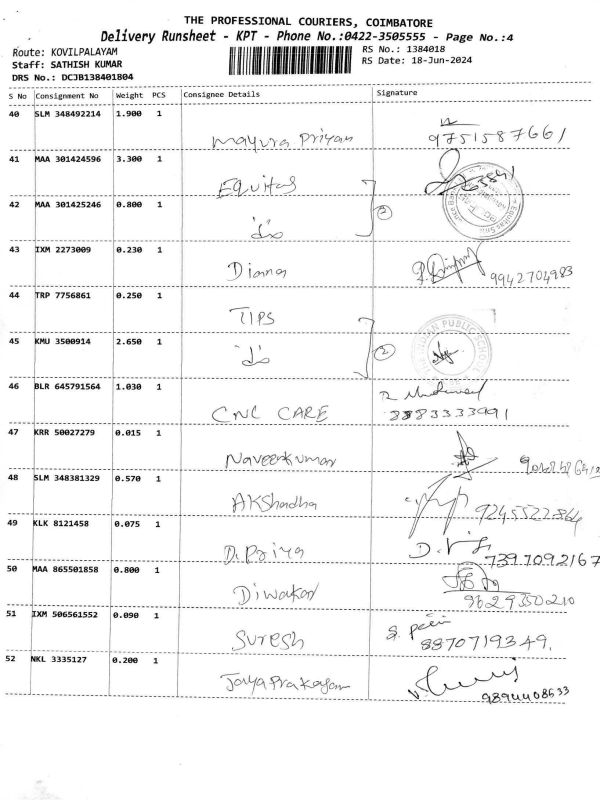 THE PROFESSIONAL COURIERS, COIMBATORE
Delivery Runsheet - KPT - Phone No.:0422-3505555 - Page No.:4
Route: KOVILPALAYAM
RS No.: 1384018
Staff: SATHISH KUMAR
RS Date: 18-Jun-2024
DRS No.: DCJB138401804
S No Consignment No Weight PCS Consignee Details Signature
40 SLM 348492214 1.900 1
Mayura Priyan 9751587661
41 MAA 301424596 3.300 1
Equitas
42 MAA 301425246 0.800 1
do 2
43 IXM 2273009 0.230 1
Diana 9942704983
44 TRP 7756861 0.250 1
TIPS
INDIAN PUBLIC SCHOOL
45 KMU 3500914 2.650 1
do 2
46 BLR 645791564 1.030 1
CNC CARE 8883333991
47 KRR 50027279 0.015 1
Naveenkumar
48 SLM 348381329 0.570 1
Akshadha 9245522864
49 KLK 8121458 0.075 1
D. Priya 7397092167
50 MAA 865501858 0.800 1
Diwakar 9629350210
51 IXM 506561552 0.090 1
Suresh 8870719349.
52 NKL 3335127 0.200 1
Jayaprakasam 9894408633